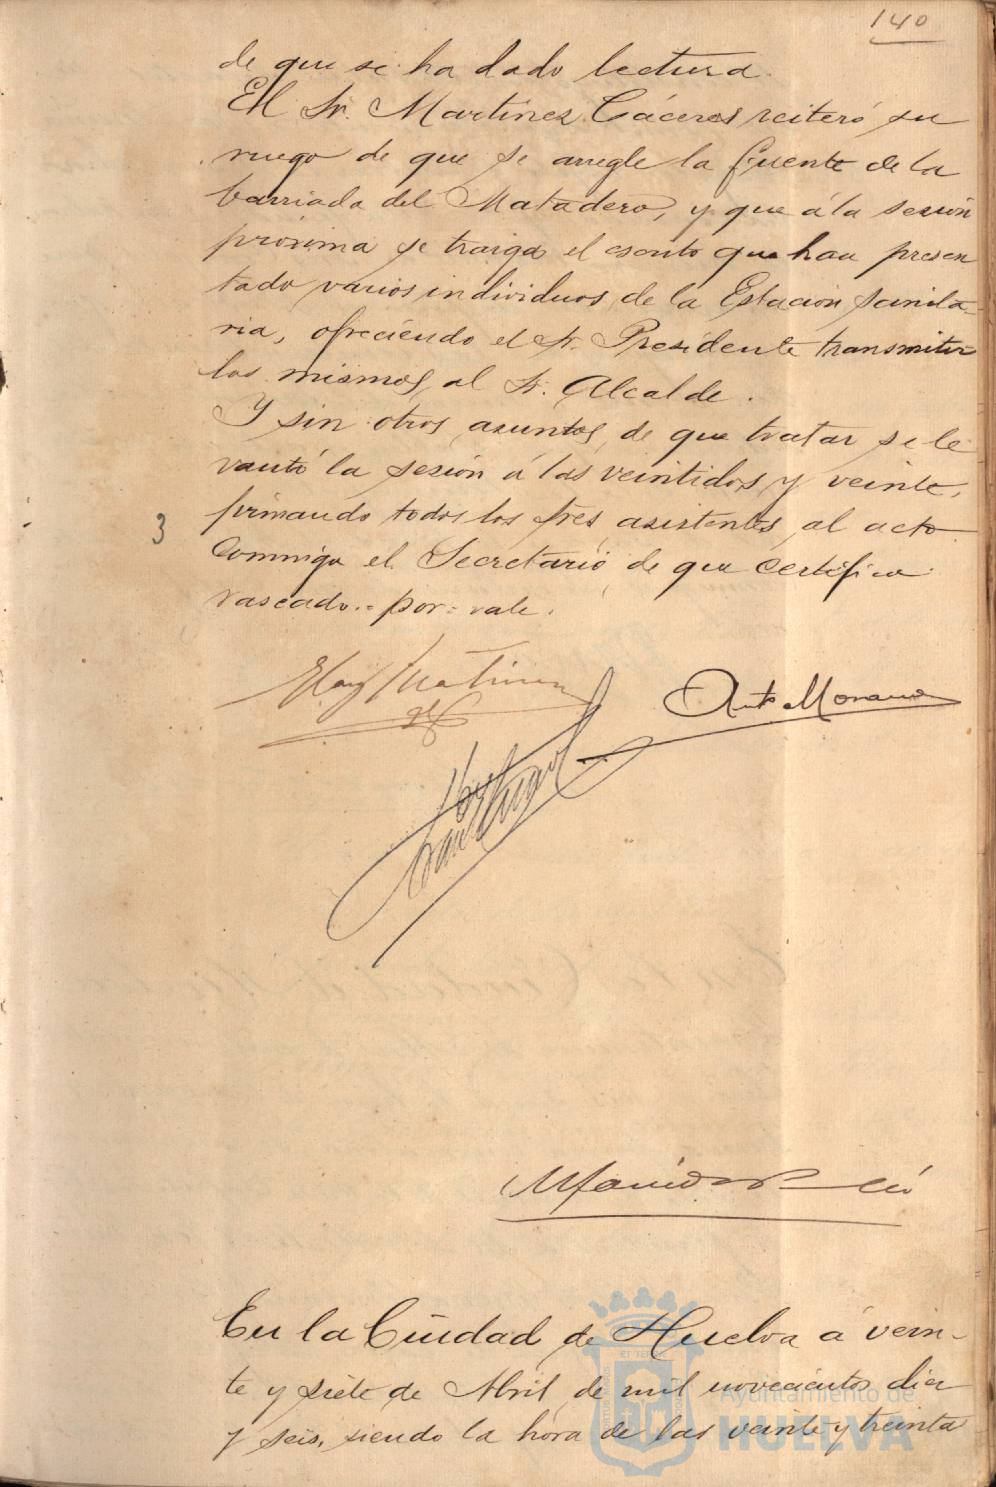 140
de que se ha dado lectura.
El Sr. Martínez Cáceres reiteró su
ruego de que se arregle la fuente de la
barriada del Matadero, y que á la sesión
próxima se traiga el escrito que han presen
tado varios individuos de la Estación Sanita-
ria, ofreciendo el Sr. Presidente transmitir
los mismos al Sr. Alcalde.
Y sin otros asuntos de que tratar se le
vantó la sesión á las veintidos y veinte,
firmando todos los Sres asistentes al acto
3
conmigo el Secretario de que certifico.
rascado.=por=vale.
Eloy Martinez
Antº Moreno
En la Ciudad de Huelva á vein-
te y siete de Abril de mil novecientos diez
y seis, siendo la hora de las veinte y treinta
Ayuntamiento de
HUELVA